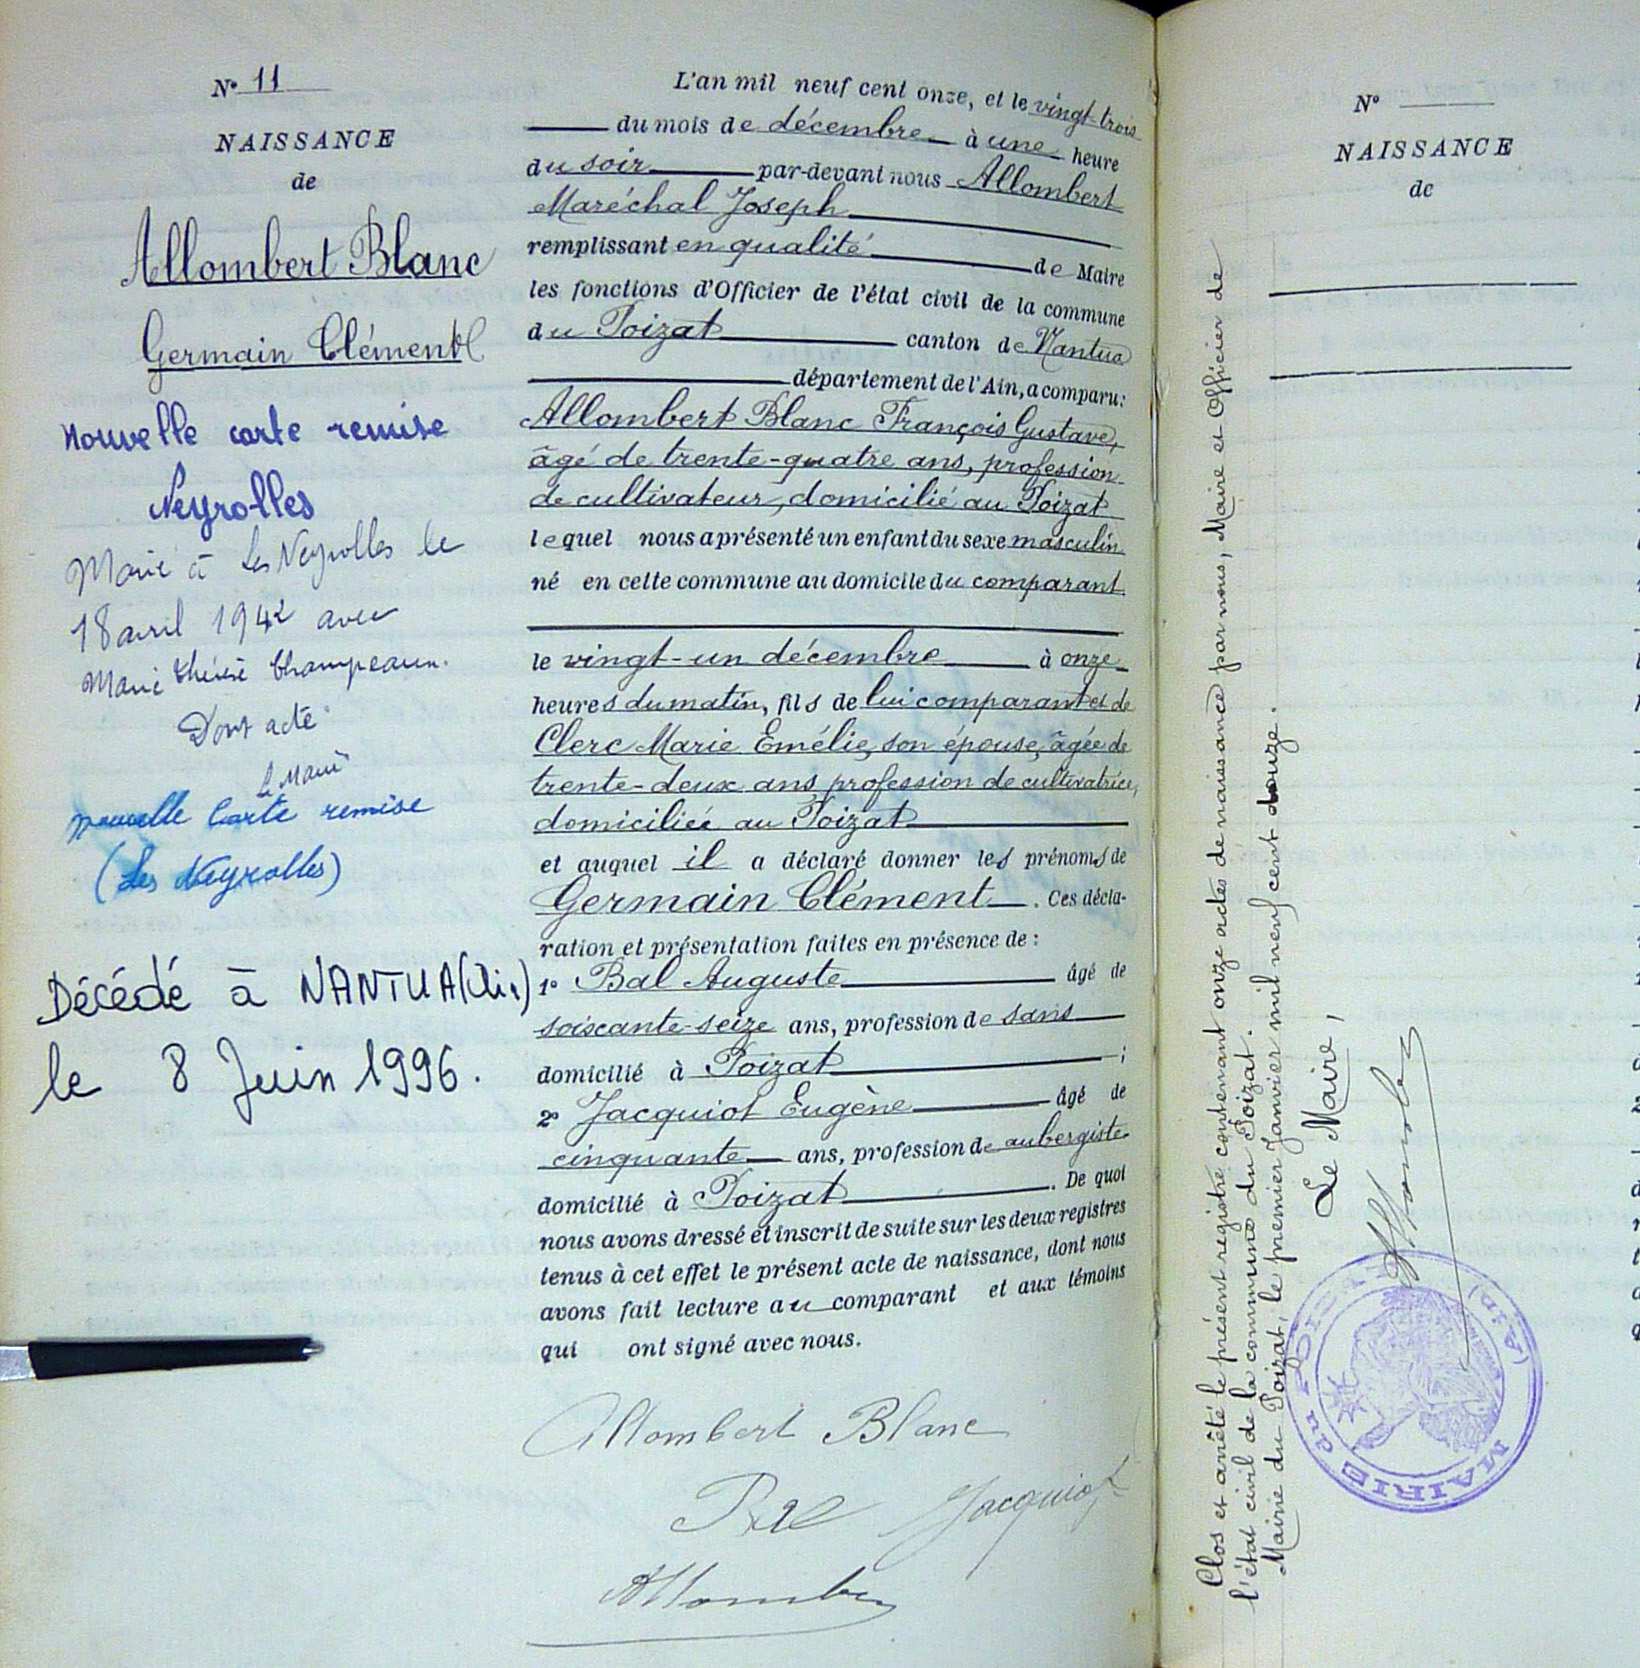 N° 11
NAISSANCE
de
Allombert Blanc
Germain Clément
Nouvelle carte remise
Neyrolles
Marié à Les Neyrolles le
18 avril 1942 avec
Marie Thérèse Champeaux.
Dont acte
Le Maire
nouvelle Carte remise
(Les Neyrolles)
Décédé à NANTUA (Ain)
le 8 Juin 1996.
L'an mil neuf cent onze, et le vingt-trois
du mois de décembre à une heure
du soir par-devant nous Allombert
Maréchal Joseph
remplissant en qualité de Maire
les fonctions d'Officier de l'état civil de la commune
du Poizat canton de Nantua
département de l'Ain, a comparu:
Allombert Blanc François Gustave,
âgé de trente-quatre ans, profession
de cultivateur, domicilié au Poizat
lequel nous a présenté un enfant du sexe masculin
né en cette commune au domicile du comparant
le vingt-un décembre à onze
heures du matin, fils de lui comparant et de
Clerc Marie Emélie, son épouse, âgée de
trente-deux ans, profession de cultivatrice,
domiciliée au Poizat
et auquel il a déclaré donner les prénoms de
Germain Clément. Ces décla-
ration et présentation faites en présence de :
1° Bal Auguste âgé de
soixante-seize ans, profession de sans
domicilié à Poizat ;
2° Jacquiot Eugène âgé de
cinquante ans, profession de aubergiste
domicilié à Poizat. De quoi
nous avons dressé et inscrit de suite sur les deux registres
tenus à cet effet le présent acte de naissance, dont nous
avons fait lecture au comparant et aux témoins
qui ont signé avec nous.
Allombert Blanc
Bal Jacquiot
Allombert
N°
NAISSANCE
de
Clos et arrêté le présent registre contenant onze actes de naissance par nous, Maire et Officier de
l'état civil de la commune du Poizat.
Mairie du Poizat, le premier Janvier mil neuf cent douze.
Le Maire,
Allombert
MAIRIE du POIZAT (AIN)